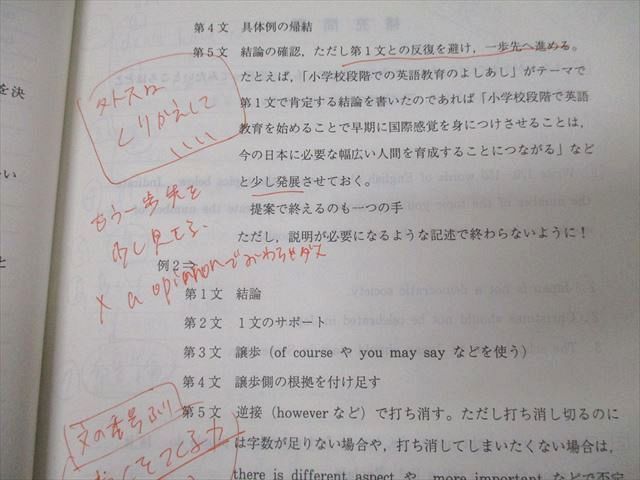 第4文 具体例の帰結
第5文 結論の確認，ただし第1文との反復を避け，一歩先へ進める。
たとえば，「小学校段階での英語教育のよしあし」がテーマで
第1文で肯定する結論を書いたのであれば「小学校段階で英語
教育を始めることで早期に国際感覚を身につけさせることは，
今の日本に必要な幅広い人間を育成することにつながる」など
と少し発展させておく。
提案で終えるのも一つの手
ただし，説明が必要になるような記述で終わらないように！
くりかえして
いいい
もう一歩先を
少し見せる
例2⇒
第1文 結論
第2文 1文のサポート
第3文 譲歩（of course や you may say などを使う）
第4文 譲歩側の根拠を付け足す
第5文 逆接（however など）で打ち消す。ただし打ち消し切るのに
は字数が足りない場合や，打ち消してしまいたくない場合は，
there is different aspect や more important などで不定
文の番号ふり
を決
い
と